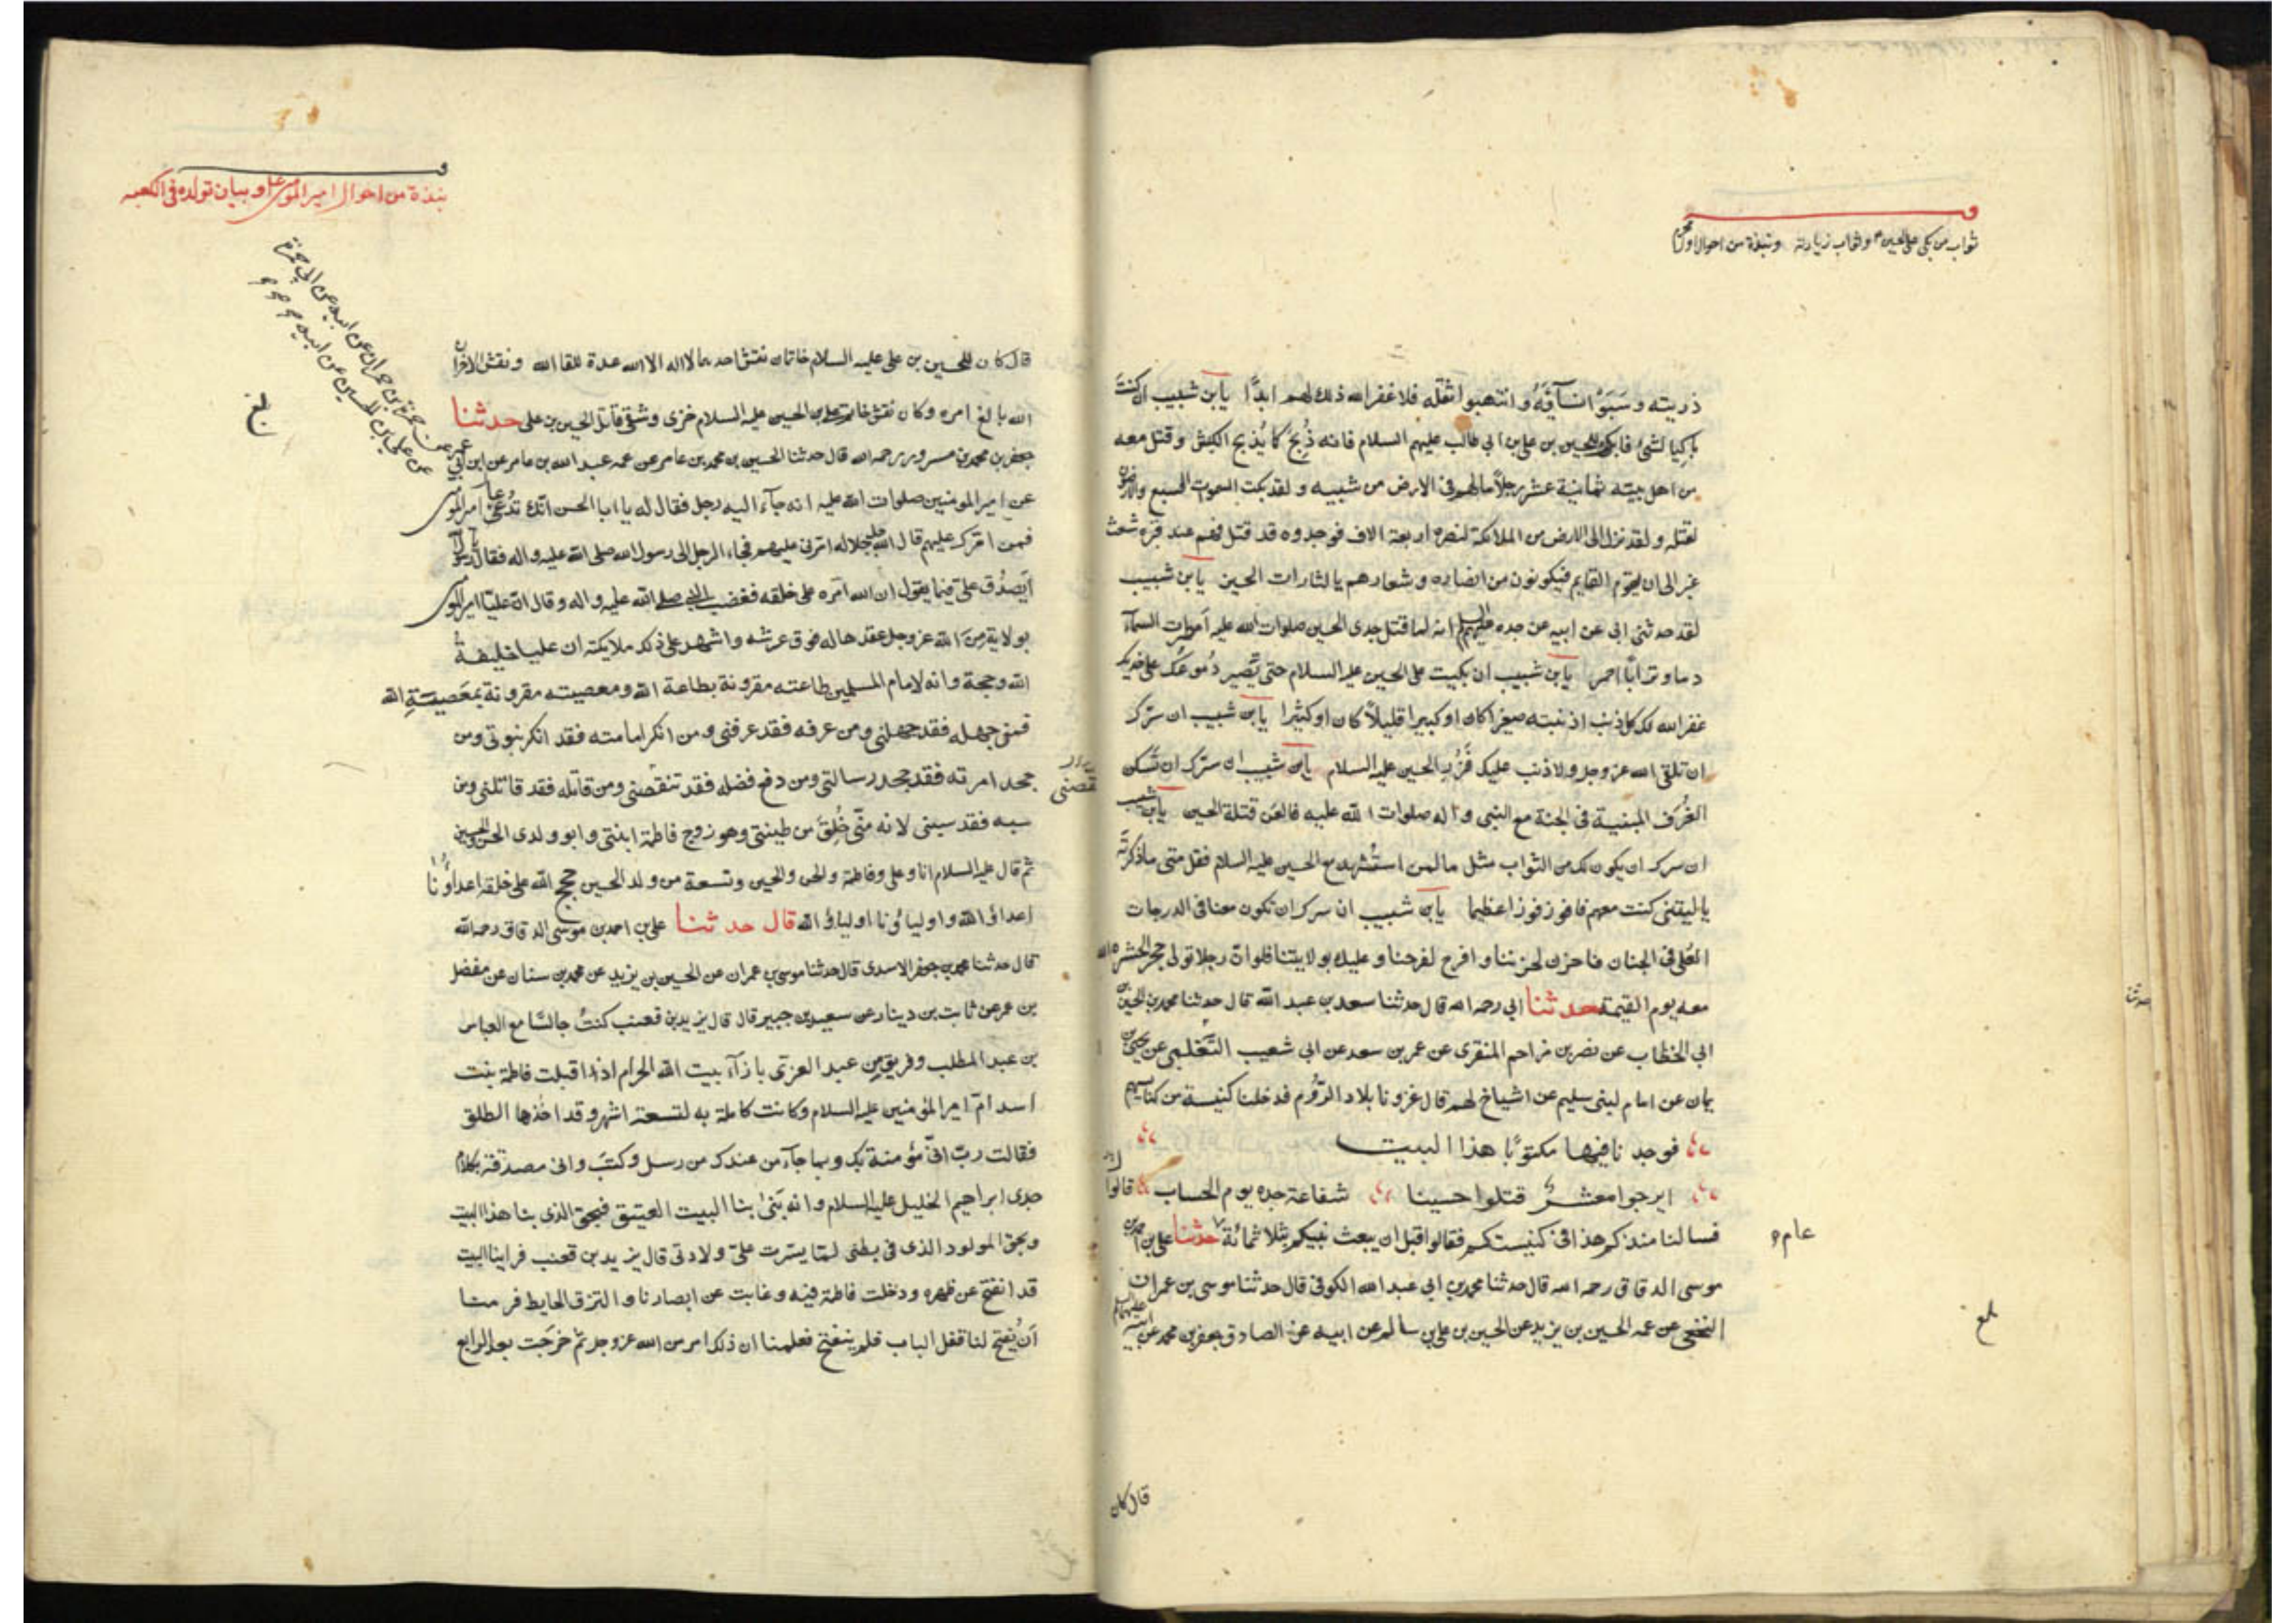 ثواب من بكى على الحسين ع وثواب زيارته ونبذة من احوال اول محرم
ذريته وسبوا نسآؤه وانتهبوا ثقله فلا غفر الله ذلك لهم ابدًا يا بن شبيب ان كنت
باكيا لشئ فابك للحسين بن على بن ابي طالب عليهم السلام فانه ذُبِحَ كما يُذبح الكبش وقتل معه
من اهل بيته ثمانية عشر رجلاً ما لهم فى الارض من شبيه ولقد بكت السموات السبع والارضون
لقتله ولقد نزل الى الارض من الملائكة لنصره اربعة الاف فوجدوه قد قتل فهم عند قبره شعث
غبر الى ان يقوم القايم فيكونون من انصاره وشعارهم يا لثارات الحسين يا بن شبيب
لقد حدثنى ابى عن ابيه عن جده عليهم السلام انه لما قتل جدى الحسين صلوات الله عليه امطرت السمآء
دما وترابًا احمر يا بن شبيب ان بكيت على الحسين عليه السلام حتى تصير دُموعك على خديك
غفر الله لك كل ذنب اذنبته صغيرا كان او كبيرا قليلاً كان او كثيرا يا بن شبيب ان سرّك
ان تلقى الله عز وجل ولا ذنب عليك فَزُرِ الحسين عليه السلام يا بن شبيب ان سرّك ان تسكن
الغُرَف المبنية فى الجنة مع النبى واله صلوات الله عليه فالعن قتلة الحسين يا بن شبيب
ان سرك ان يكون لك من الثواب مثل ما لمن استُشهد مع الحسين عليه السلام فقل متى ما ذكرته
يا ليتنى كنت معهم فافوز فوزا عظيما يا بن شبيب ان سرك ان تكون معنا فى الدرجات
العُلى فى الجنان فاحزن لحزننا وافرح لفرحنا وعليك بولايتنا فلو ان رجلا تولى حجر الحشره الله
معه يوم القيمة حدثنا ابي رحمه الله قال حدثنا سعد بن عبد الله قال حدثنا محمد بن الحسين بن
ابي الخطاب عن نصر بن مزاحم المنقرى عن عمر بن سعد عن ابي شعيب التغلبى عن يحيى بن
يمان عن امام لبنى سليم عن اشياخ لهم قال غزونا بلاد الرّوُم فدخلنا كنيسة من كنايسهم
فوجدنا فيها مكتوبًا هذا البيت
ايرجوا معشرٌ قتلوا حسينا شفاعة جده يوم الحساب قالوا
فسالنا منذ كم هذا فى كنيستكم فقالوا قبل ان يبعث نبيكم بثلاثمائة عام حدثنا على بن احمد بن
موسى الدقاق رحمه الله قال حدثنا محمد بن ابي عبد الله الكوفى قال حدثنا موسى بن عمران
النخعى عن عمه الحسين بن يزيد عن الحسين بن على بن سالم عن ابيه عن الصادق جعفر بن محمد عن ابيه عليهما السلم
بلغ
قال كان
نبذة من احوال امير المؤمنين وبيان تولده فى الكعبه
قال كان للحسين بن على عليه السلام خاتمان نقش احدهما لا اله الا الله عدة للقا الله ونقش الاخر ان
الله بالغ امره وكان نقش خاتم على بن الحسين عليه السلام خزى وشقى قاتل الحسين بن على حدثنا
جعفر بن محمد بن مسرور رحمه الله قال حدثنا الحسين بن محمد بن عامر عن عمه عبد الله بن عامر عن ابن ابي
عمير عن حمزة بن حمران عن ابيه عن ابي حمزة
عن على بن الحسين عن ابيه
عن امير المومنين صلوات الله عليه انه جآء اليه رجل فقال له يا ابا الحسن انك تدُعىٰ امير المؤمنين
فمن امّرك عليهم قال الله جل جلاله امّرنى عليهم فجاء الرجل الى رسول الله صلى الله عليه واله فقال يا رسول الله
أيَصدُق على فيما يقول ان الله امّره على خلقه فغضب النبى صلى الله عليه واله وقال انّ عليّا امير المؤمنين
بولاية مِنَ الله عز وجل عقدها له فوق عرشه واشهد على ذلك ملايكته ان عليا خليفة
الله وحجة وانه لامام المسلمين طاعته مقرونة بطاعة الله ومعصيته مقرونة بمَعصِيَةِ الله
فمن جهله فقد جهلنى ومن عرفه فقد عرفنى ومن انكر امامته فقد انكر نبوتى ومن
جحد امرته فقد جحد رسالتى ومن دفع فضله فقد تنقّصنى ومن قاتله فقد قاتلنى ومن
سبه فقد سبنى لانه منّى خُلِقَ من طينتى وهو زوج فاطمة ابنتى وابو ولدى الحسن والحسين
ثم قال عليه السلام انا وعلى وفاطمة والحسن والحسين وتسعة من ولد الحسين حجج الله على خلقه اعداؤُنا
اعداؤ الله واولياؤنا اولياؤ الله قال حدثنا على بن احمد بن موسى الدقاق رحمه الله
قال حدثنا محمد بن جعفر الاسدى قال حدثنا موسى بن عمران عن الحسين بن يزيد عن محمد بن سنان عن مفضل
بن عمر عن ثابت بن دينار عن سعيد بن جبير قال قال يزيد بن قعنب كنتُ جالسًا مع العباس
بن عبد المطلب وفريق من عبد العزى بازآء بيت الله الحرام اذ اقبلت فاطمة بنت
اسد امّ امير المؤمنين عليه السلام وكانت حاملة به لتسعة اشهر وقد اخذها الطلق
فقالت ربّ انّى مؤمنة بك وبما جآء من عندك من رسل وكتب وانى مصدقة بكلام
جدى ابراهيم الخليل عليه السلام وانه بَنىٰ بنا البيت العتيق فبحق الذى بنا هذا البيت
وبحق المولود الذى فى بطنى لمّا يسّرت علىّ ولادتى قال يزيد بن قعنب فراينا البيت
قد انفتح عن ظهره ودخلت فاطمة فيه وغابت عن ابصارنا والتزق الحايط فرمنا
أن يُفتح لنا قفل الباب فلم ينفتح فعلمنا ان ذلك امر من الله عز وجل ثمّ خرَجَت بعد الرابع